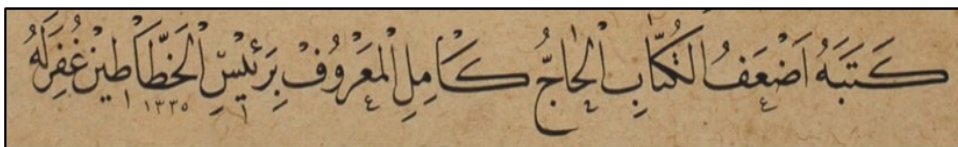 كَتَبَهُ اَضْعَفُ الْكُتَّابِ الْحَاجُّ كَامِلِ الْمَعْرُوفْ بِرَئِيسِ الْخَطَّاطِينْ غُفِرَلَهُ ١٣٣٥